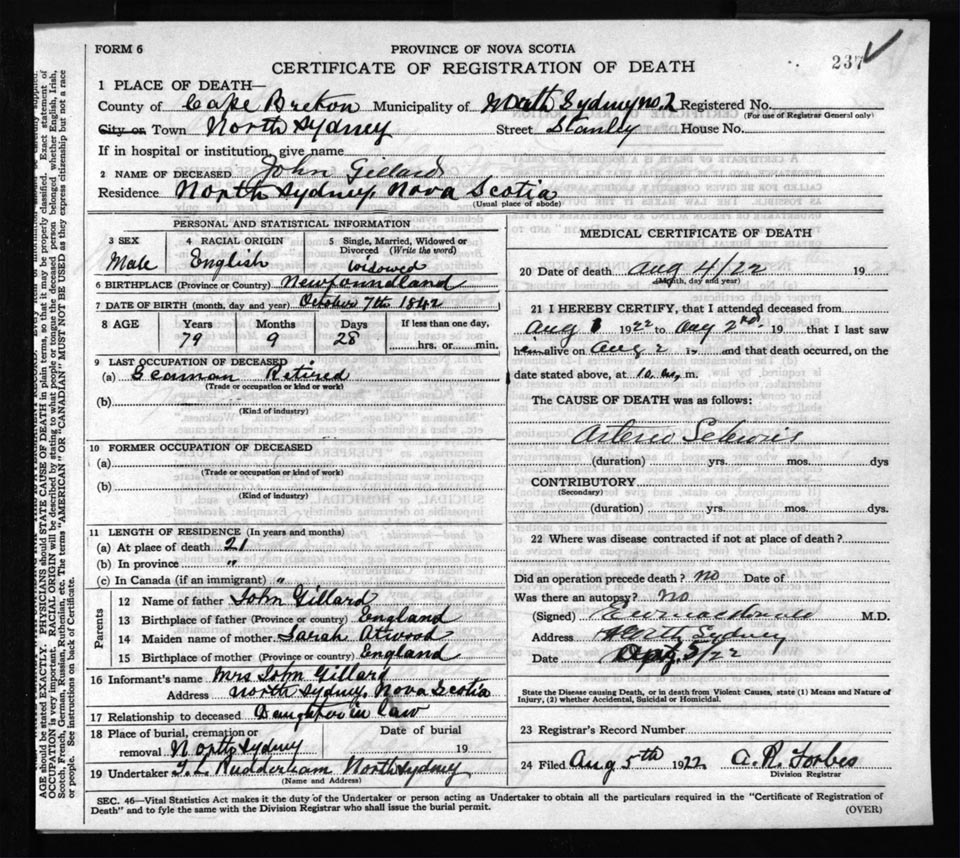 FORM 6
PROVINCE OF NOVA SCOTIA
CERTIFICATE OF REGISTRATION OF DEATH
237
1 PLACE OF DEATH—
County of Cape Breton Municipality of North Sydney No. 2 Registered No.
(For use of Registrar General only)
City or Town North Sydney Street Stanly House No.
If in hospital or institution, give name
2 NAME OF DECEASED John Gillard
Residence North Sydney, Nova Scotia
(Usual place of abode)
PERSONAL AND STATISTICAL INFORMATION
3 SEX 4 RACIAL ORIGIN 5 Single, Married, Widowed or Divorced (Write the word)
Male English Widowed
6 BIRTHPLACE (Province or Country) Newfoundland
7 DATE OF BIRTH (month, day and year) October 7th 1842
8 AGE Years Months Days If less than one day,
79 9 28 hrs. or min.
9 LAST OCCUPATION OF DECEASED
(a) Seaman Retired
(Trade or occupation or kind of work)
(b)
(Kind of industry)
10 FORMER OCCUPATION OF DECEASED
(a)
(Trade or occupation or kind of work)
(b)
(Kind of industry)
11 LENGTH OF RESIDENCE (In years and months)
(a) At place of death 21
(b) In province "
(c) In Canada (if an immigrant) "
Parents
12 Name of father John Gillard
13 Birthplace of father (Province or country) England
14 Maiden name of mother Sarah Atwood
15 Birthplace of mother (Province or country) England
16 Informant's name Mrs John Gillard
Address North Sydney, Nova Scotia
17 Relationship to deceased Daughter in law
18 Place of burial, cremation or removal North Sydney Date of burial 19
19 Undertaker T. L. Rudderham North Sydney
(Name and Address)
MEDICAL CERTIFICATE OF DEATH
20 Date of death Aug 4/22 19
(Month, day and year)
21 I HEREBY CERTIFY, that I attended deceased from
Aug 1 1922 to Aug 2nd 19 that I last saw
him alive on Aug 2 19 and that death occurred, on the
date stated above, at 10 m.
The CAUSE OF DEATH was as follows:
Arterio Sclerosis
(duration) yrs. mos. dys
CONTRIBUTORY
(Secondary)
(duration) yrs. mos. dys.
22 Where was disease contracted if not at place of death?
Did an operation precede death? No Date of
Was there an autopsy? No
(Signed) M.D.
Address North Sydney
Date Aug. 5/22
State the Disease causing Death, or in death from Violent Causes, state (1) Means and Nature of
Injury, (2) whether Accidental, Suicidal or Homicidal.
23 Registrar's Record Number
24 Filed Aug 5th 1922 A. R. Forbes
Division Registrar
SEC. 46—Vital Statistics Act makes it the duty of the Undertaker or person acting as Undertaker to obtain all the particulars required in the "Certificate of Registration of
Death" and to fyle the same with the Division Registrar who shall issue the burial permit.
(OVER)
AGE should be stated EXACTLY. PHYSICIANS should STATE CAUSE OF DEATH in plain terms, so that it may be properly classified. Exact statement of
OCCUPATION is very important. RACIAL ORIGIN will be described by stating to what people or tongue the deceased person belonged whether English, Irish,
Scotch, French, German, Russian, Ruthenian, etc. The terms "AMERICAN" OR "CANADIAN" MUST NOT BE USED as they express citizenship but not a race
or people. See instructions on back of Certificate.